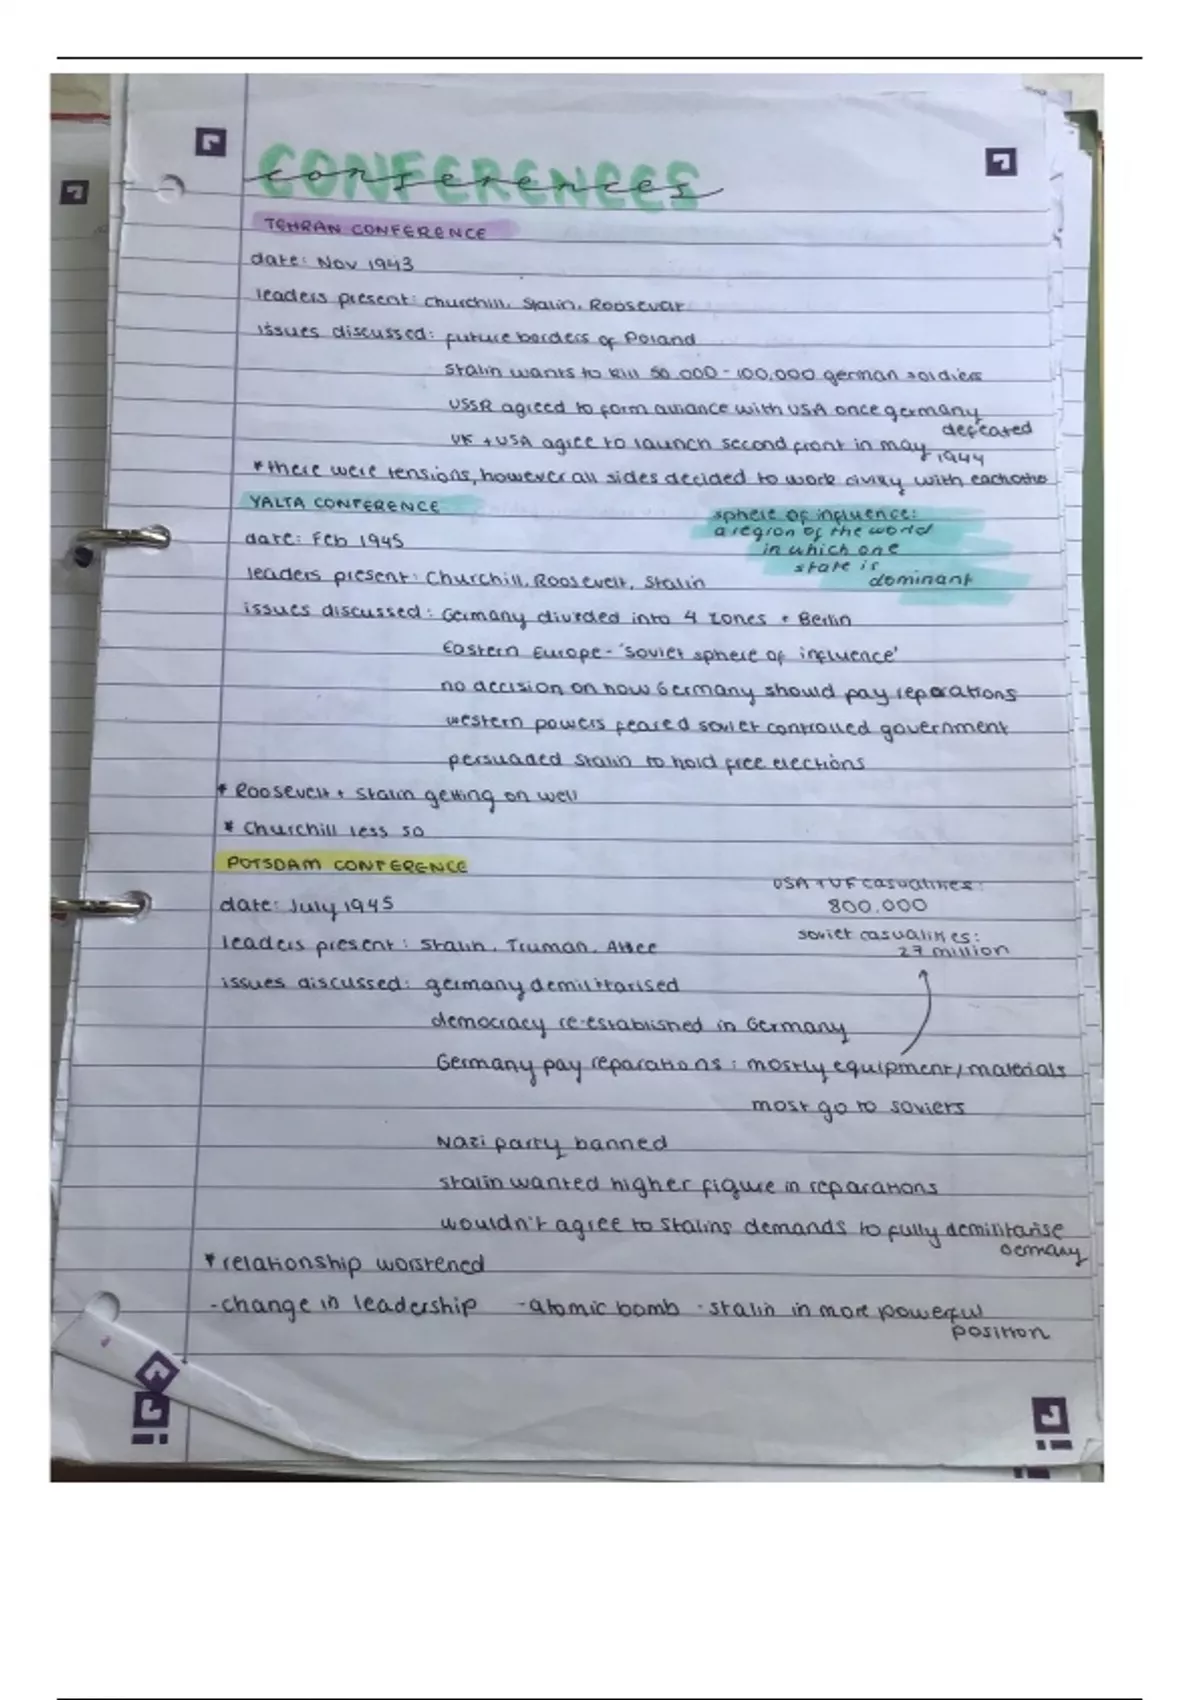 CONFERENCES
conferences
TEHRAN CONFERENCE
date: Nov 1943
leaders present: Churchill, Stalin, Roosevelt
issues discussed: future borders of Poland
Stalin wants to kill 50,000 - 100,000 german soldiers
USSR agreed to form alliance with USA once germany
defeated
UK + USA agree to launch second front in may
1944
*there were tensions, however all sides decided to work civilly with eachother
YALTA CONFERENCE
sphere of influence:
a region of the world
in which one
state is
dominant
date: Feb 1945
leaders present: Churchill, Roosevelt, Stalin
issues discussed: Germany divided into 4 zones + Berlin
Eastern Europe - 'soviet sphere of influence'
no decision on how Germany should pay reparations
western powers feared soviet controlled government
persuaded Stalin to hold free elections
* Roosevelt + Stalin getting on well
* Churchill less so
POTSDAM CONFERENCE
USA + UK casualties:
800,000
soviet casualties:
27 million
date: July 1945
leaders present: Stalin, Truman, Attlee
issues discussed: germany demilitarised
democracy re-established in Germany
Germany pay reparations: mostly equipment/materials
most go to soviets
Nazi party banned
Stalin wanted higher figure in reparations
wouldn't agree to Stalins demands to fully demilitarise
Germany
* relationship worstened
-change in leadership -atomic bomb -Stalin in more powerful
position